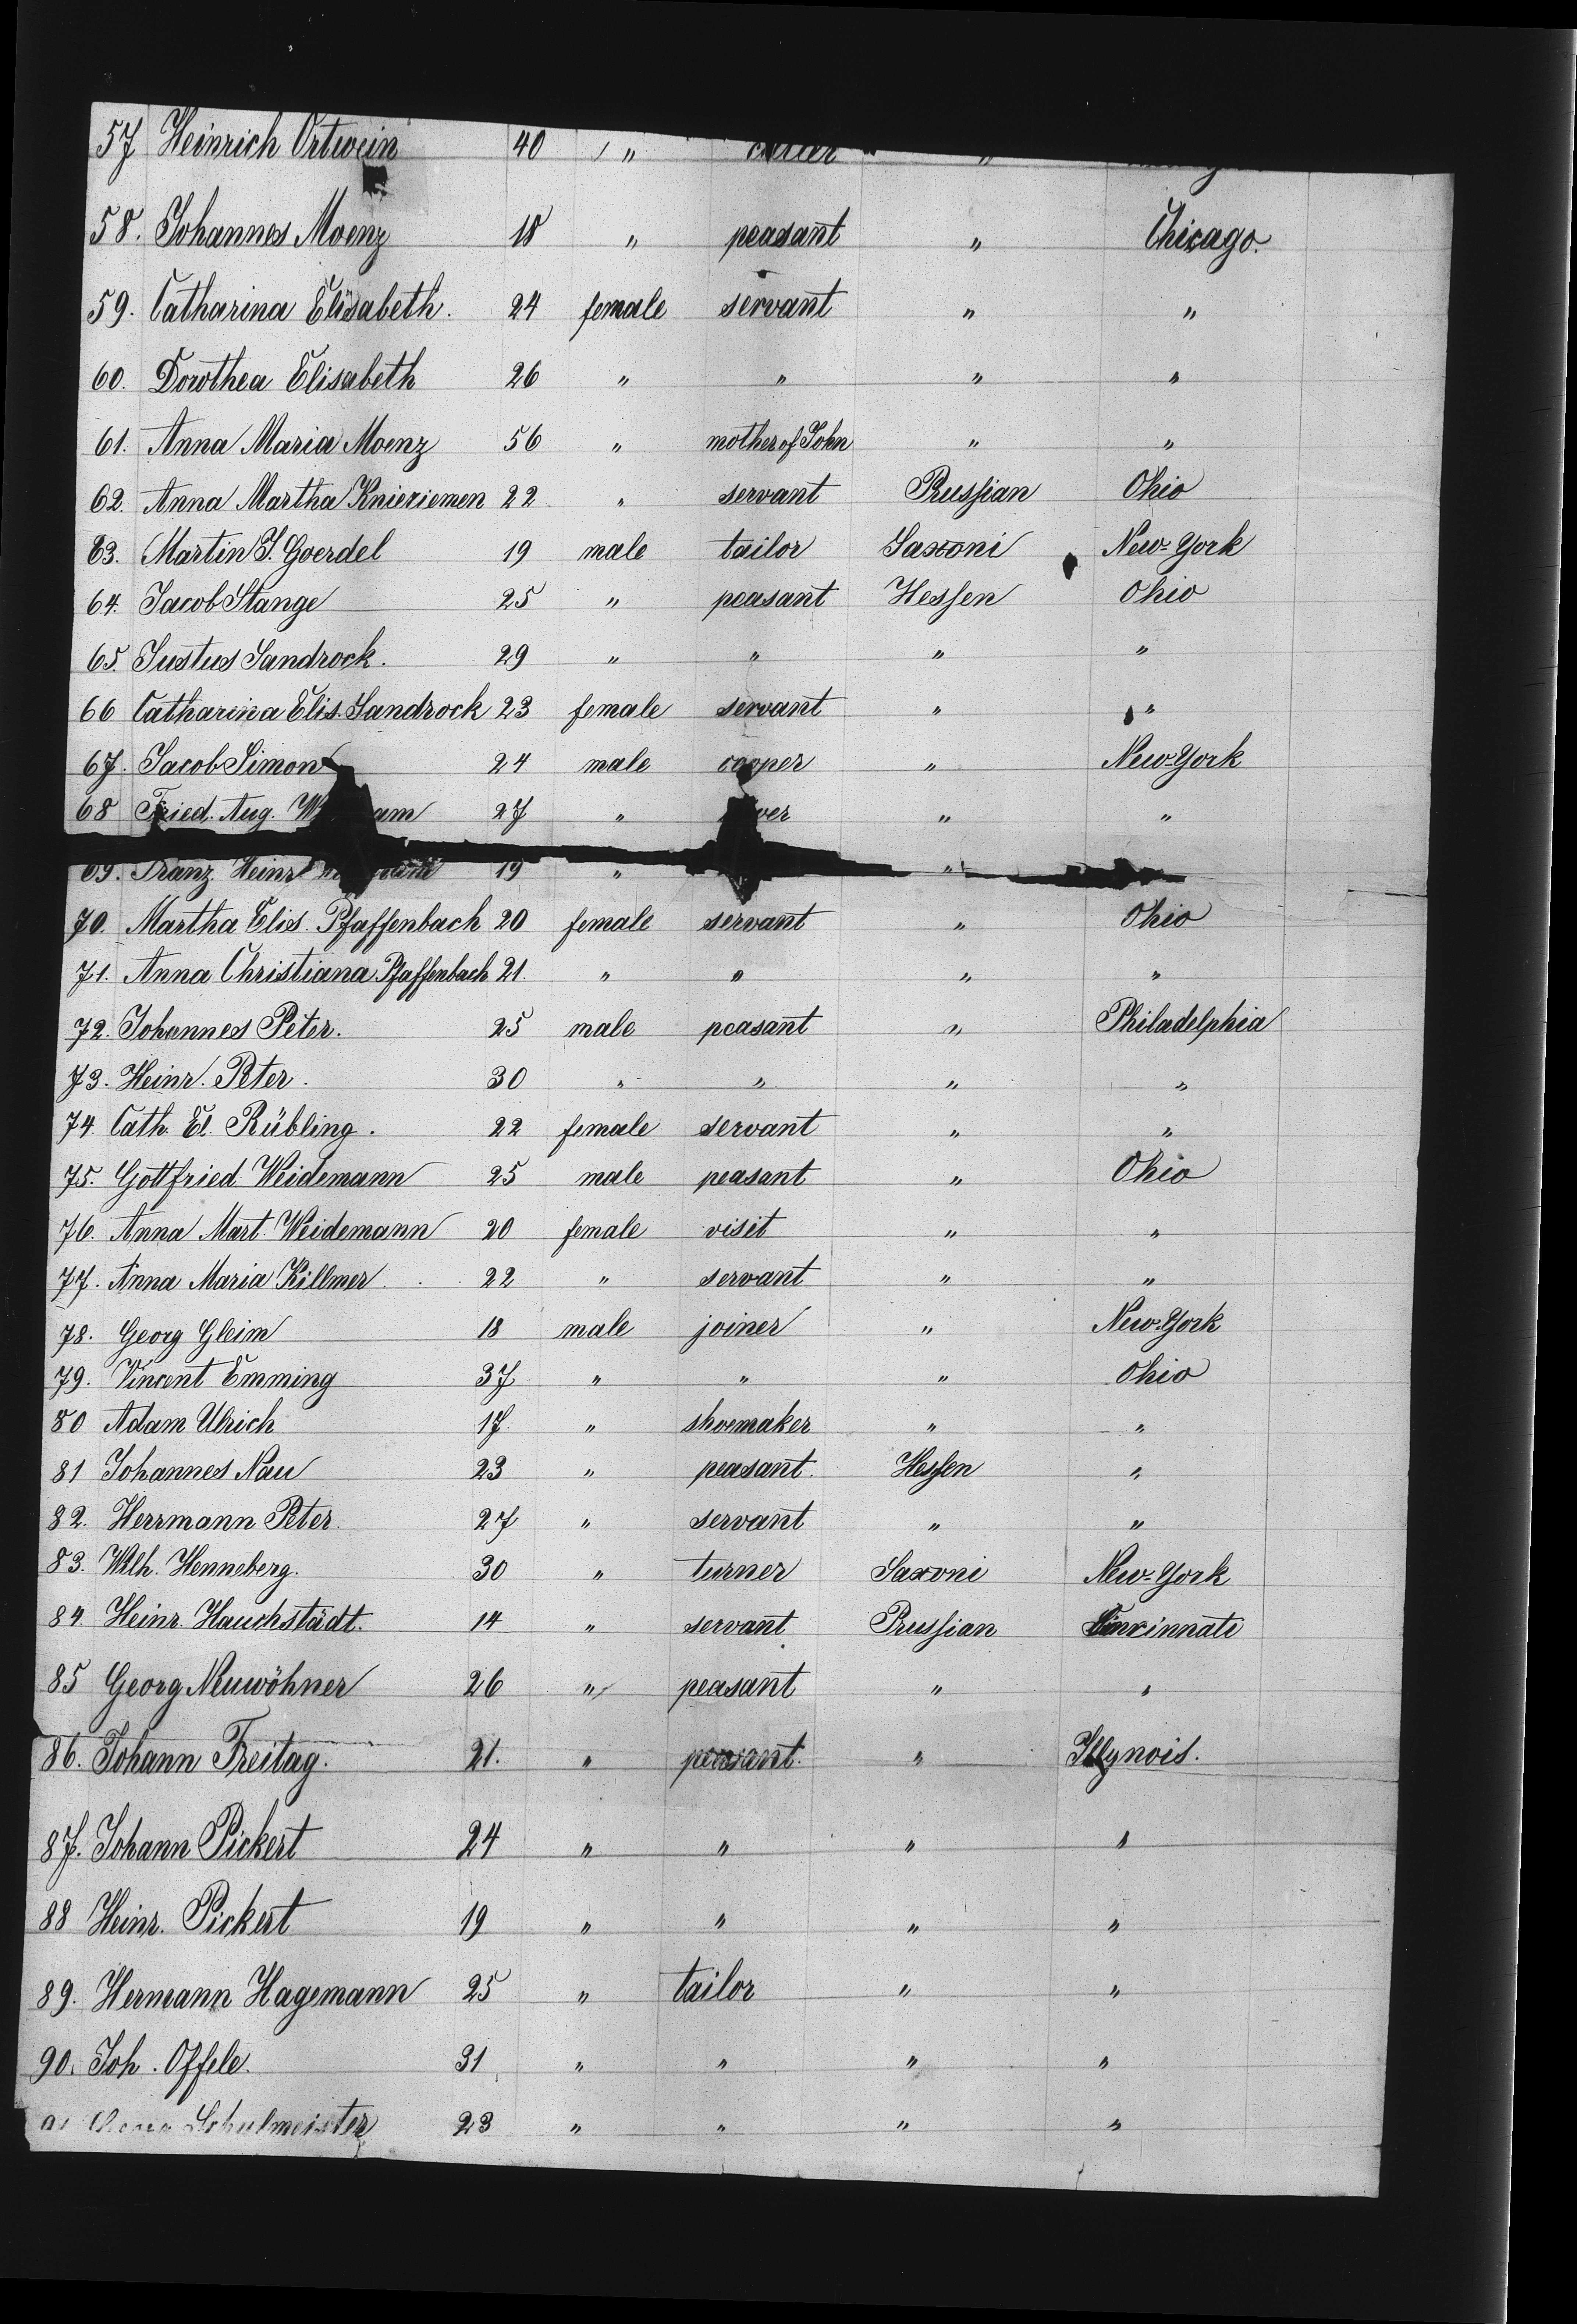 57 Heinrich Ortwein 40 " "
58. Johannes Moenz 18 " peasant " Chicago.
59. Catharina Elisabeth. 24 female servant " "
60. Dorothea Elisabeth 26 " " " "
61. Anna Maria Moenz 56 " mother of John " "
62. Anna Martha Knieriemen 22 " servant Prussian Ohio
63. Martin J. Goerdel 19 male tailor Saxoni New-York
64. Jacob Stange 25 " peasant Hessen Ohio
65. Justus Sandrock. 29 " " " "
66 Catharina Elis. Sandrock 23 female servant " "
67. Jacob Simon 24 male cooper " New-York
68 Fried. Aug. 27 " " "
69. Franz Heinr 19 " "
70. Martha Elis. Pfaffenbach 20 female servant " Ohio
71. Anna Christiana Pfaffenbach 21. " " " "
72. Johannes Peter. 25 male peasant " Philadelphia
73. Heinr. Peter. 30 " " " "
74. Cath. El. Rübling. 22 female servant " "
75. Gottfried Weidemann 25 male peasant " Ohio
76. Anna Mart. Weidemann 20 female visit " "
77. Anna Maria Killmer 22 " servant " "
78. Georg Gleim 18 male joiner " New-York
79. Vincent Emming 37 " " " Ohio
80 Adam Ulrich 17 " shoemaker " "
81 Johannes Nau 23 " peasant. Hessen "
82. Herrmann Peter. 27 " servant " "
83. Wilh. Henneberg. 30 " turner Saxoni New-York
84 Heinr. Hauchstädt. 14 " servant Prussian Cincinnati
85 Georg Neuwöhner 26 " peasant " "
86. Johann Freitag. 21. " peasant. " Illynois.
87. Johann Pickert 24 " " " "
88 Heinr. Pickert 19 " " " "
89. Hermann Hagemann 25 " tailor " "
90. Joh. Offele. 31 " " " "
Schulmeister 23 " " " "